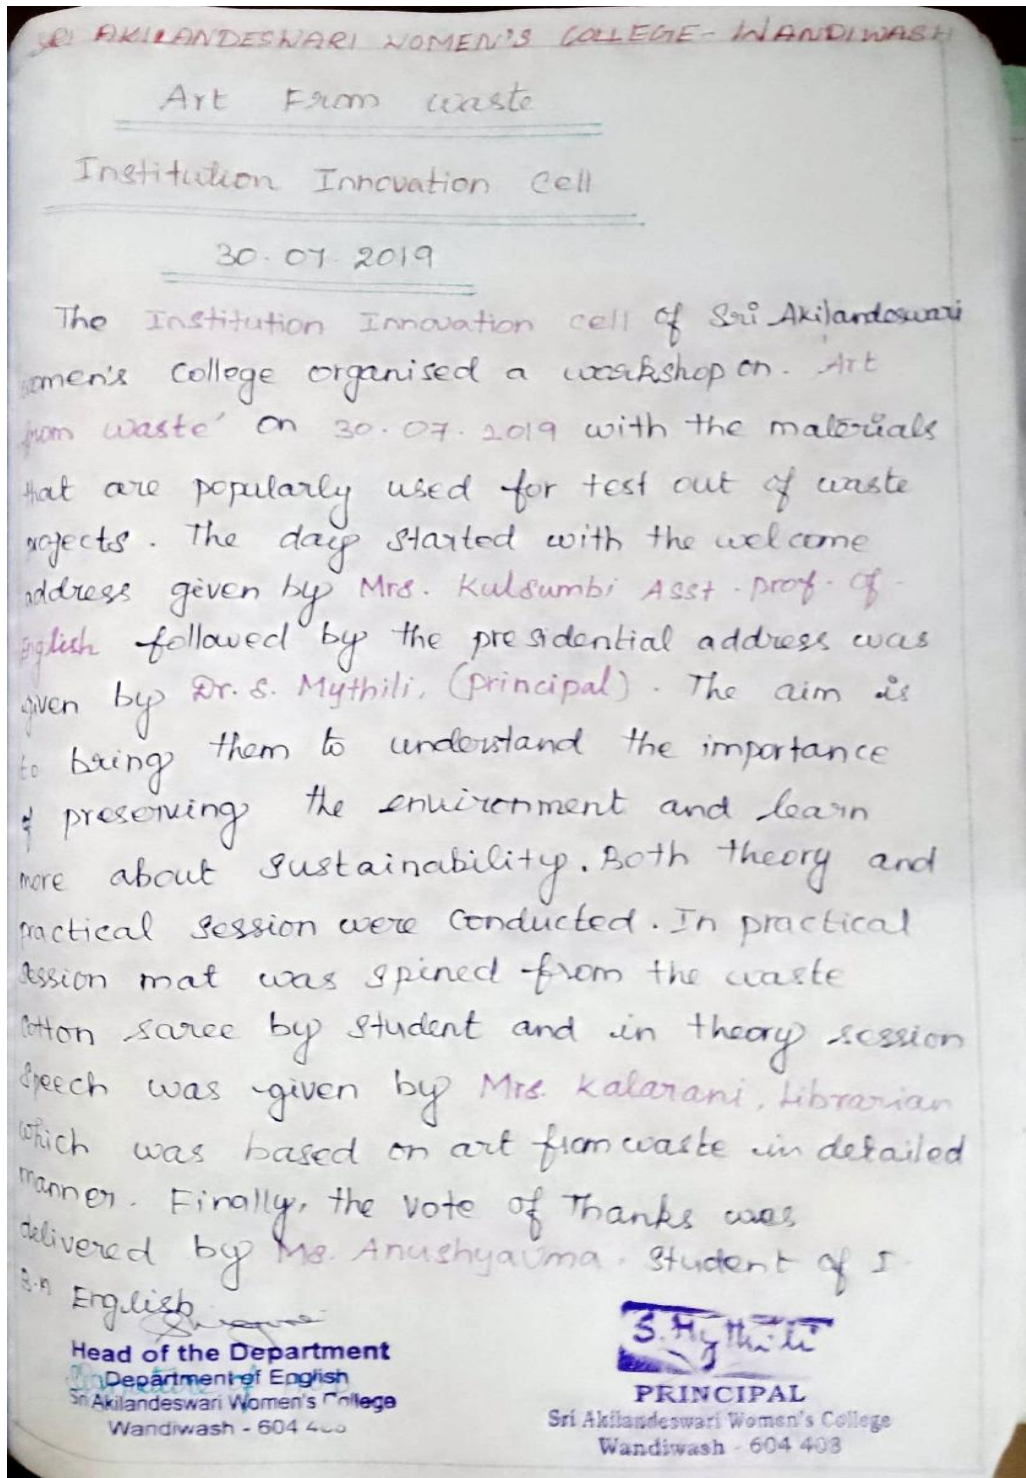 SRI AKILANDESWARI WOMEN'S COLLEGE - WANDIWASH
Art From waste
Institution Innovation cell
30.07.2019
The Institution Innovation cell of Sri Akilandeswari
women's College organised a workshop on. Art
from waste' on 30.07.2019 with the materials
that are popularly used for test out of waste
projects. The day started with the welcome
address given by Mrs. Kulsumbi Asst. prof. of
English followed by the presidential address was
given by Dr. S. Mythili, (principal). The aim is
to bring them to understand the importance
of preserving the environment and learn
more about sustainability. Both theory and
practical session were conducted. In practical
session mat was spined from the waste
Cotton saree by student and in theory session
speech was given by Mrs. Kalarani, Librarian
which was based on art from waste in detailed
manner. Finally, the vote of Thanks was
delivered by Ms. Anushyauma. Student of I
English
S. Mythili
Head of the Department
Department of English
Sri Akilandeswari Women's College
Wandiwash - 604
PRINCIPAL
Sri Akilandeswari Women's College
Wandiwash - 604 408